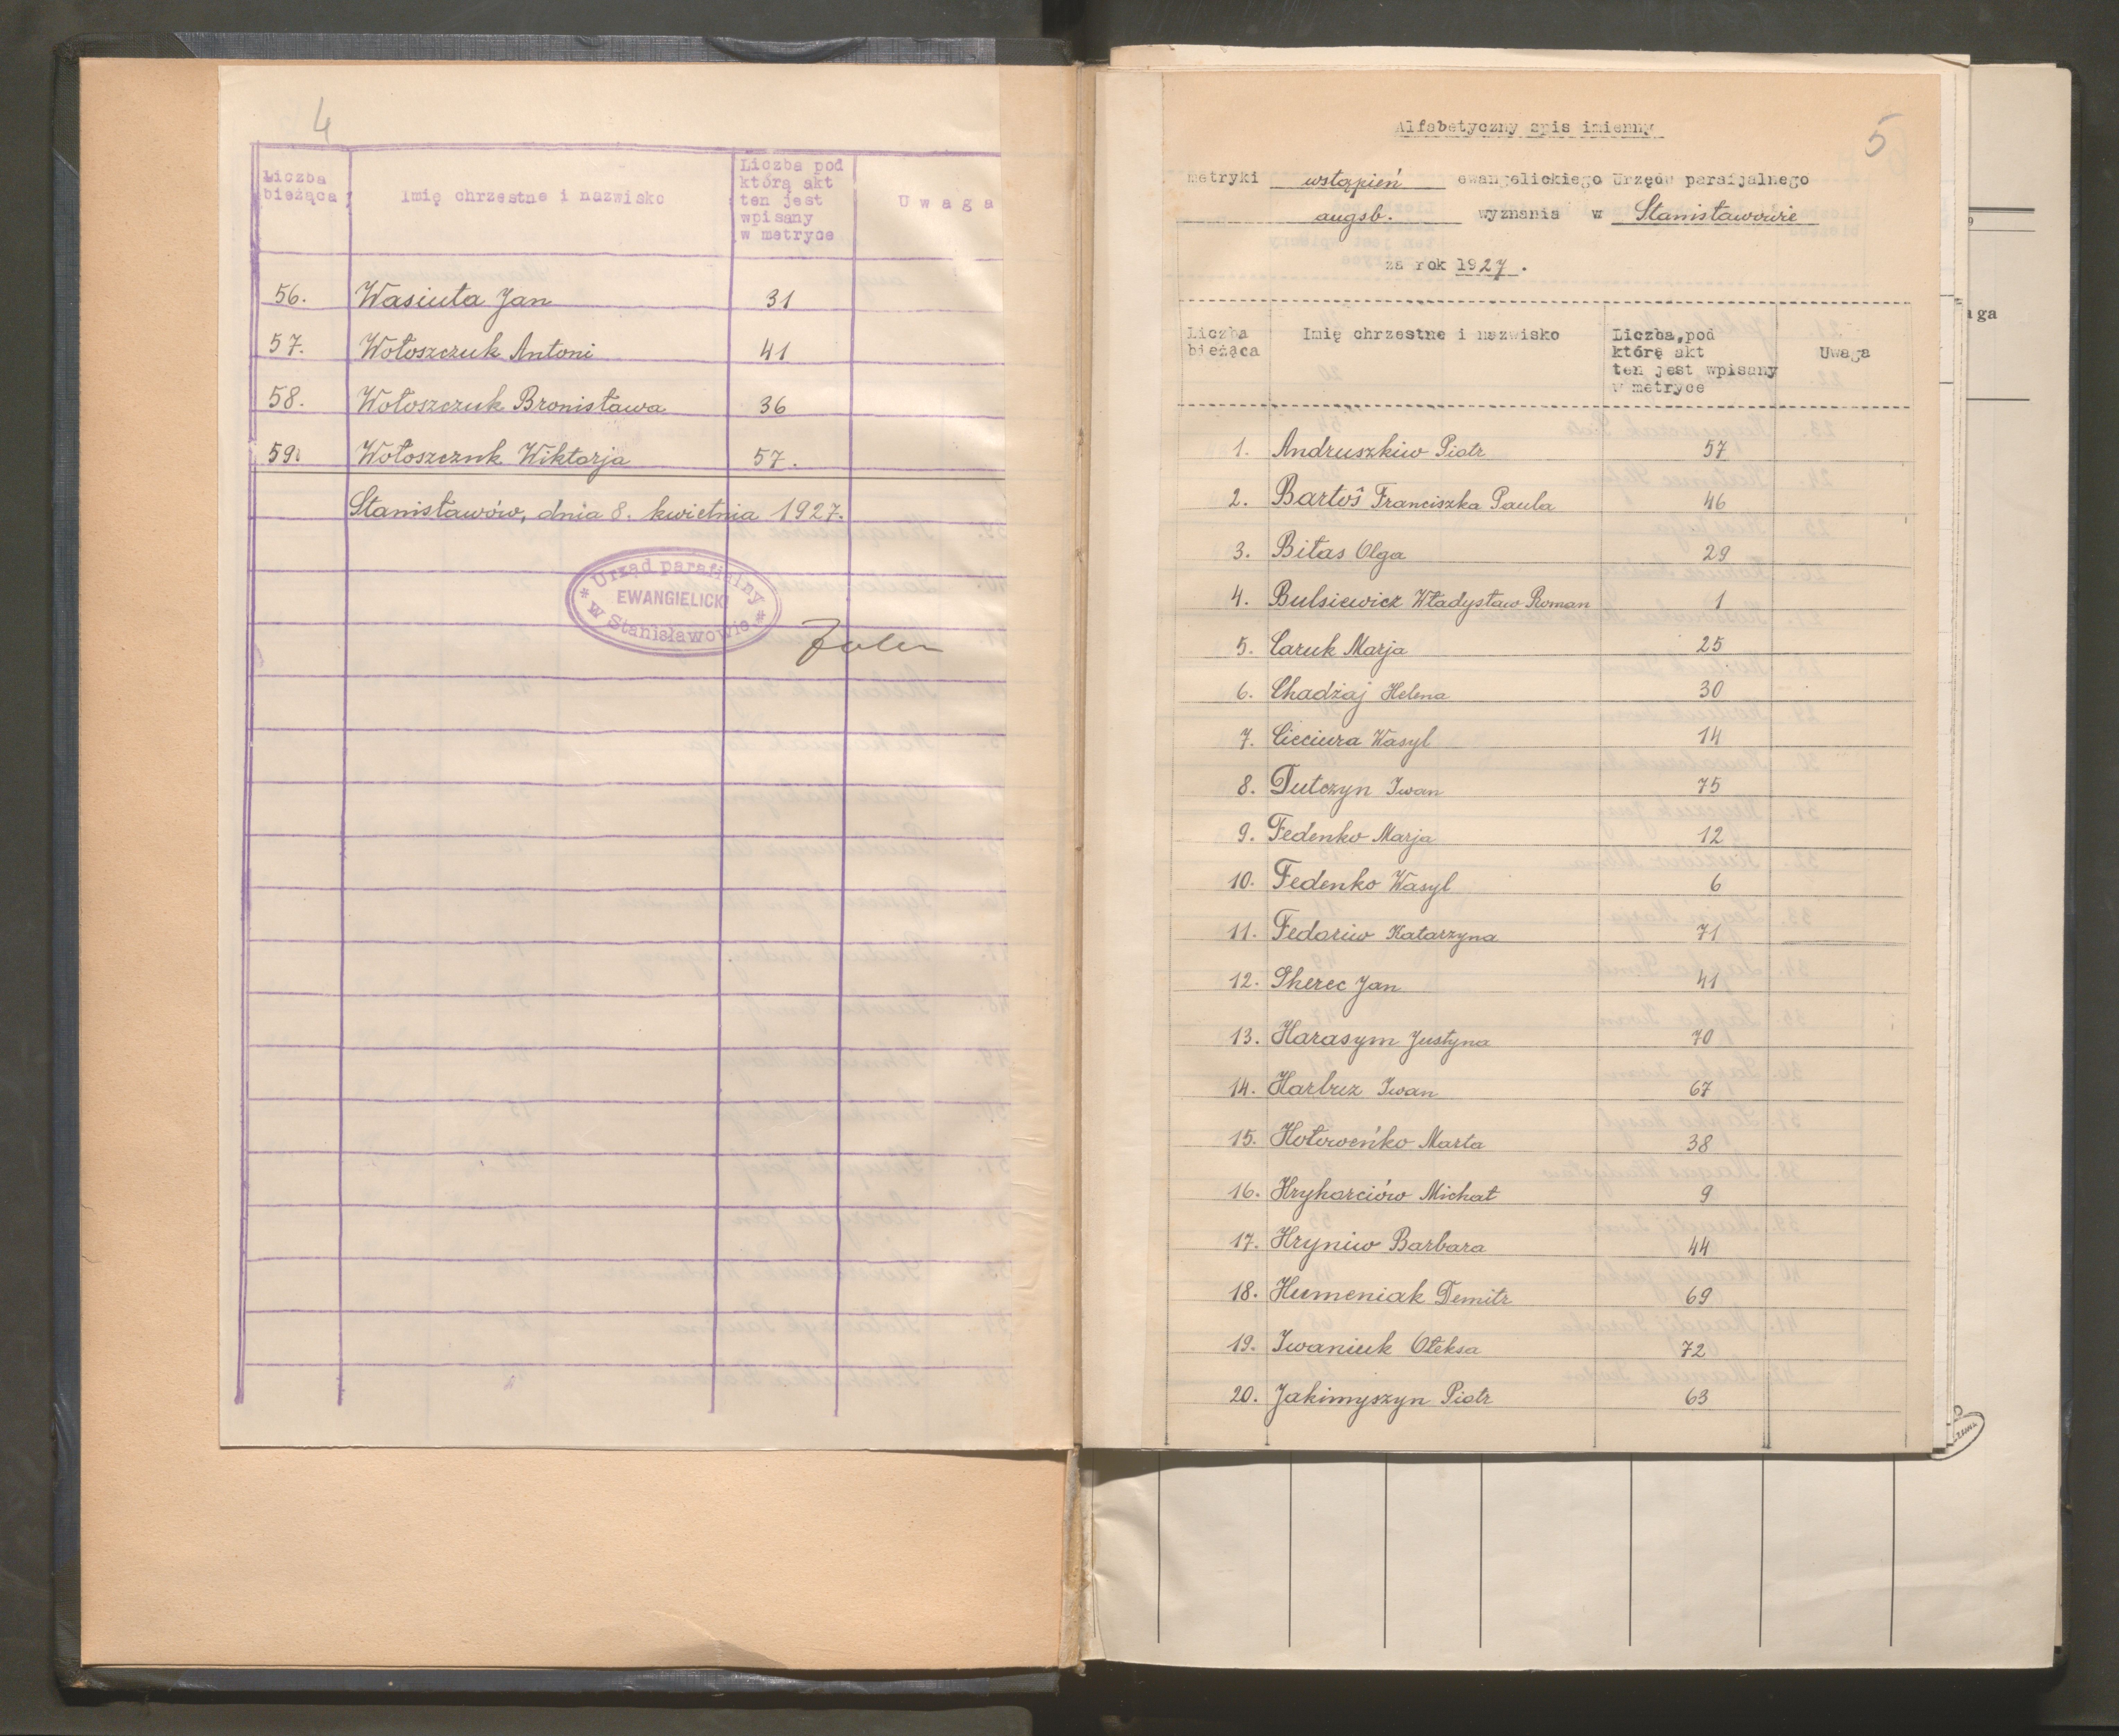 4
Liczba bieżąca
Imię chrzestne i nazwisko
Liczba pod którą akt ten jest wpisany w metryce
Uwaga
56. Wasiuta Jan 31
57. Wołoszczuk Antoni 41
58. Wołoszczuk Bronisława 36
59. Wołoszczuk Wiktorja 57.
Stanisławów, dnia 8. kwietnia 1927.
Urząd parafialny
EWANGIELICKI
w Stanisławowie
5
Alfabetyczny spis imienny
metryki wstąpień ewangelickiego Urzędu parafjalnego
augsb. wyznania w Stanisławowie
za rok 1927.
Liczba bieżąca
Imię chrzestne i nazwisko
Liczba, pod którą akt ten jest wpisany w metryce
Uwaga
1. Andruszkiw Piotr 57
2. Bartoš Franciszka Paula 46
3. Biłas Olga 29
4. Bulsiewicz Władysław Roman 1
5. Caruk Marja 25
6. Chadżaj Helena 30
7. Cicciura Wasyl 14
8. Dutczyn Iwan 75
9. Fedenko Marja 12
10. Fedenko Wasyl 6
11. Fedoriw Katarzyna 71
12. Gherec Jan 41
13. Harasym Justyna 70
14. Harbuz Iwan 67
15. Hołoweńko Marta 38
16. Hryhorciów Michał 9
17. Hryniw Barbara 44
18. Humeniak Demitr 69
19. Iwaniuk Ołeksa 72
20. Jakimyszyn Piotr 63